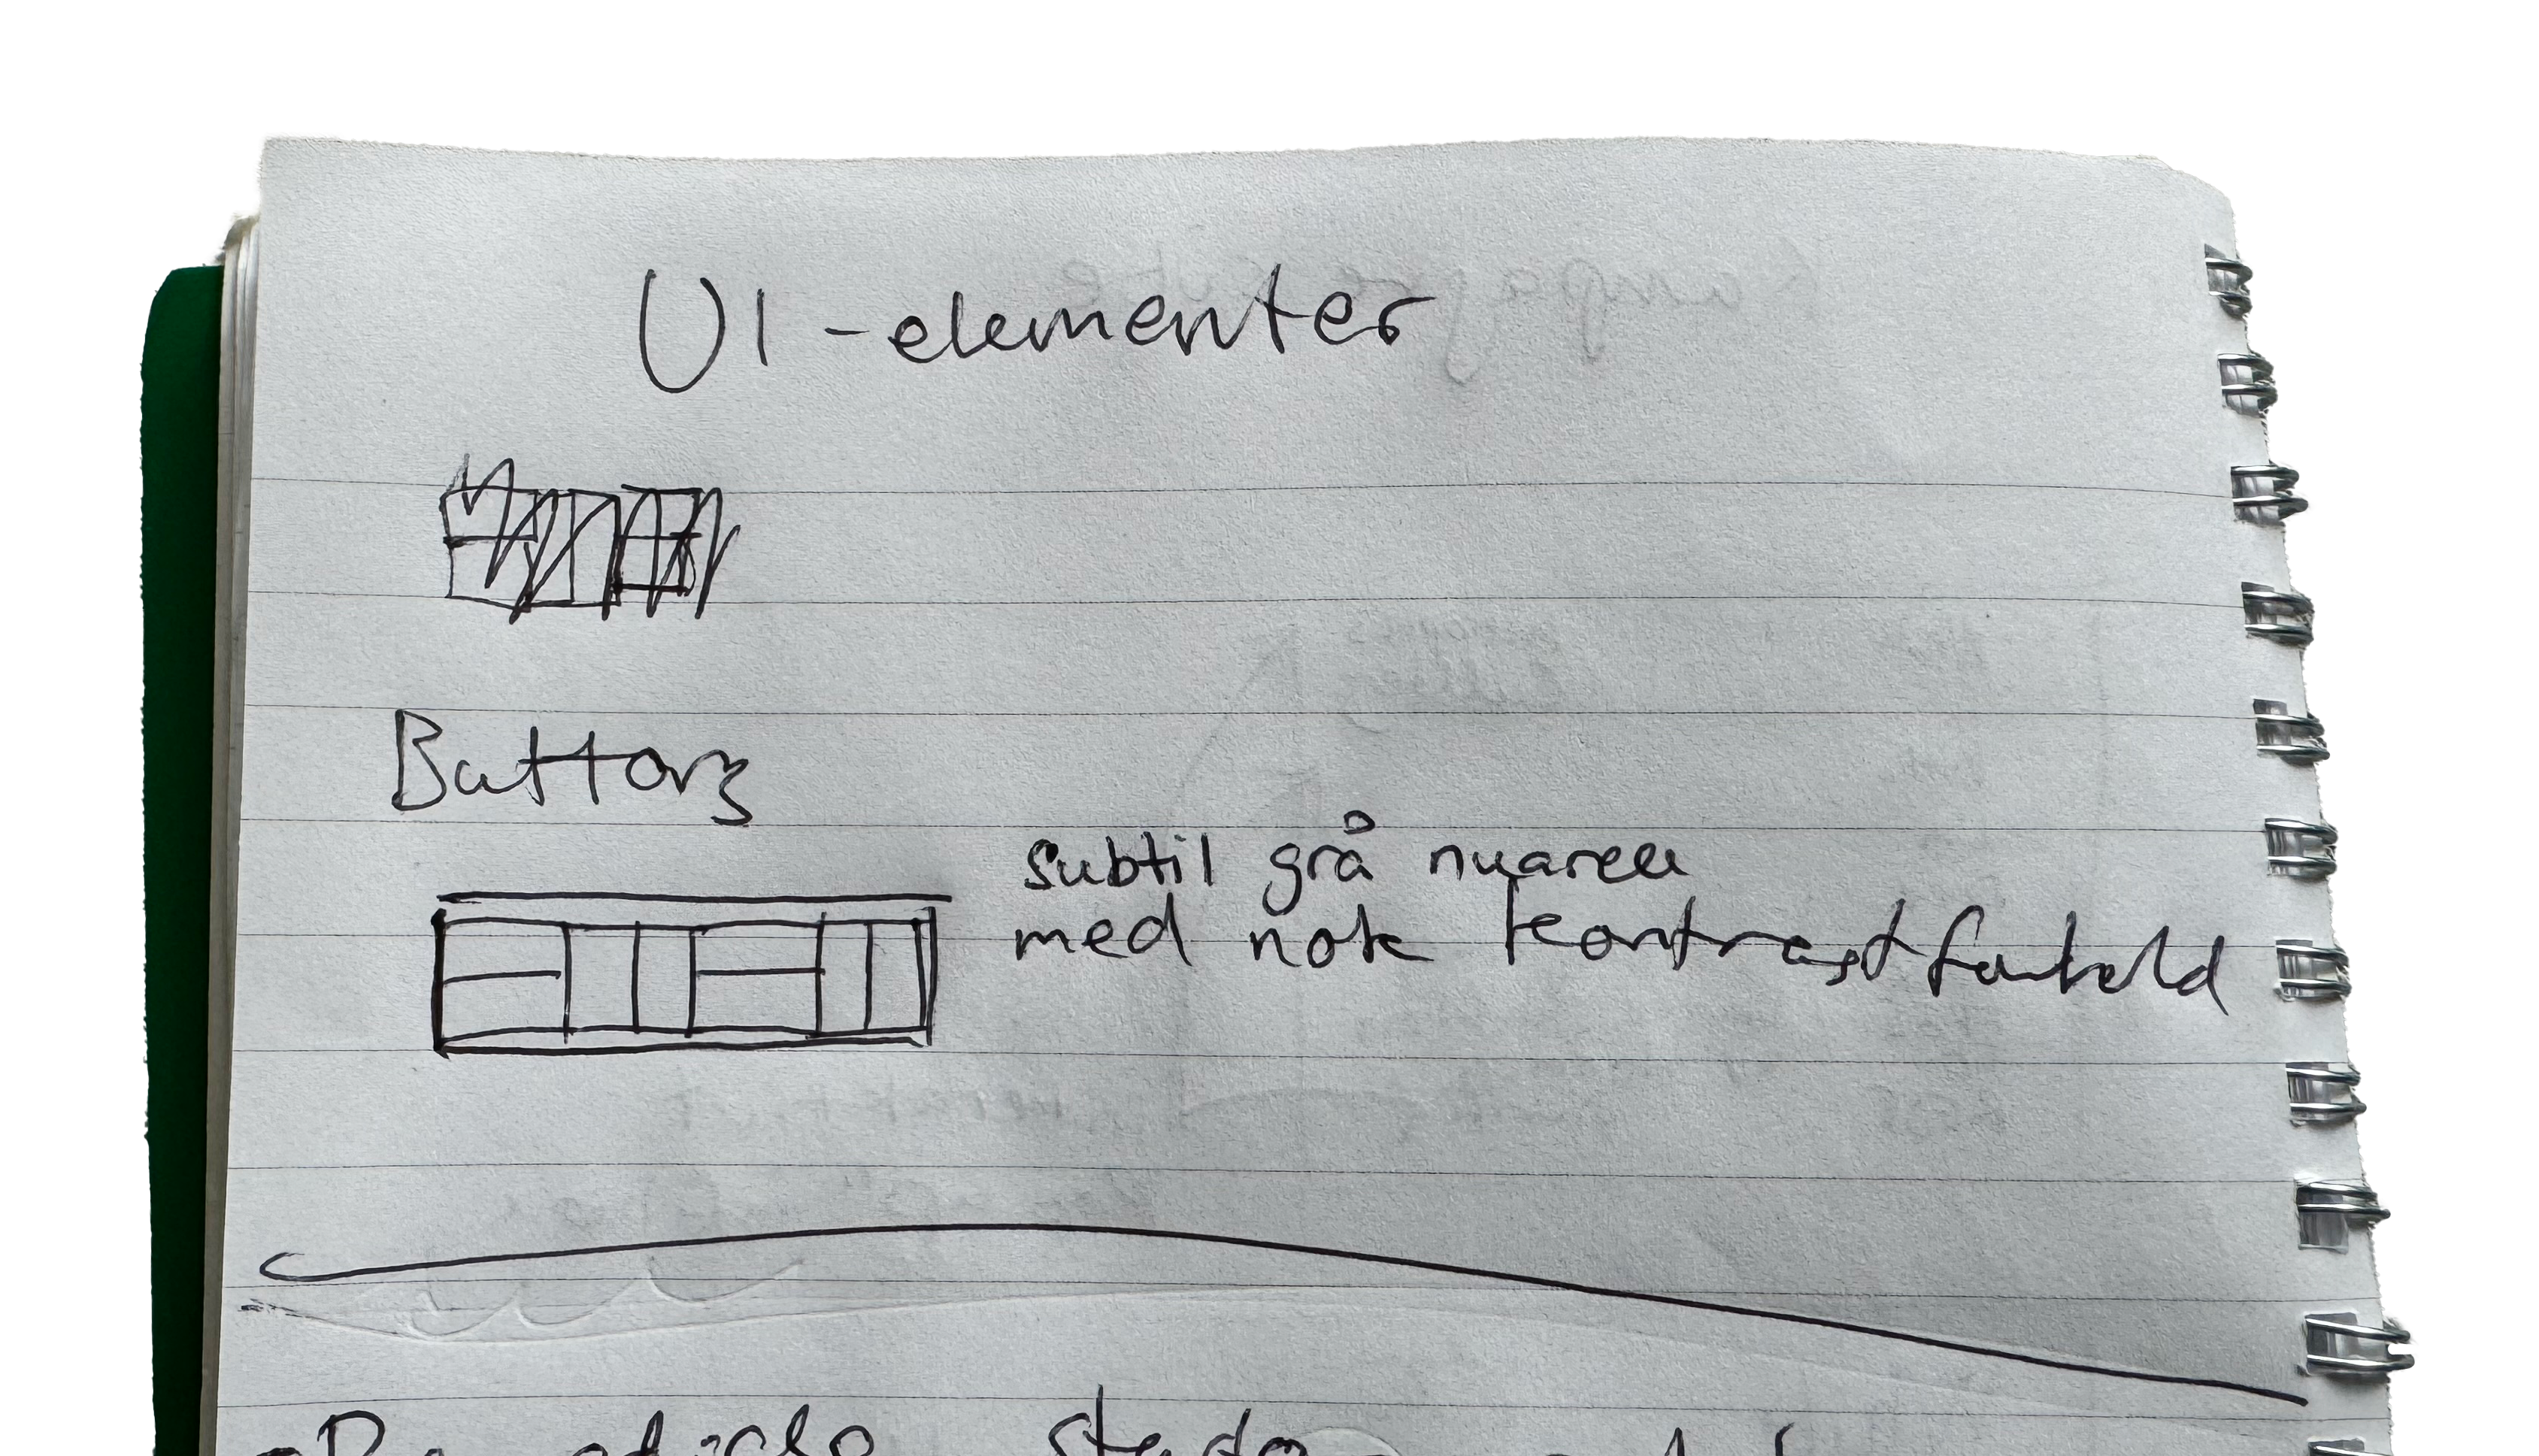 UI-elementer
Buttons
subtil grå nuancer
med nok kontrastforhold